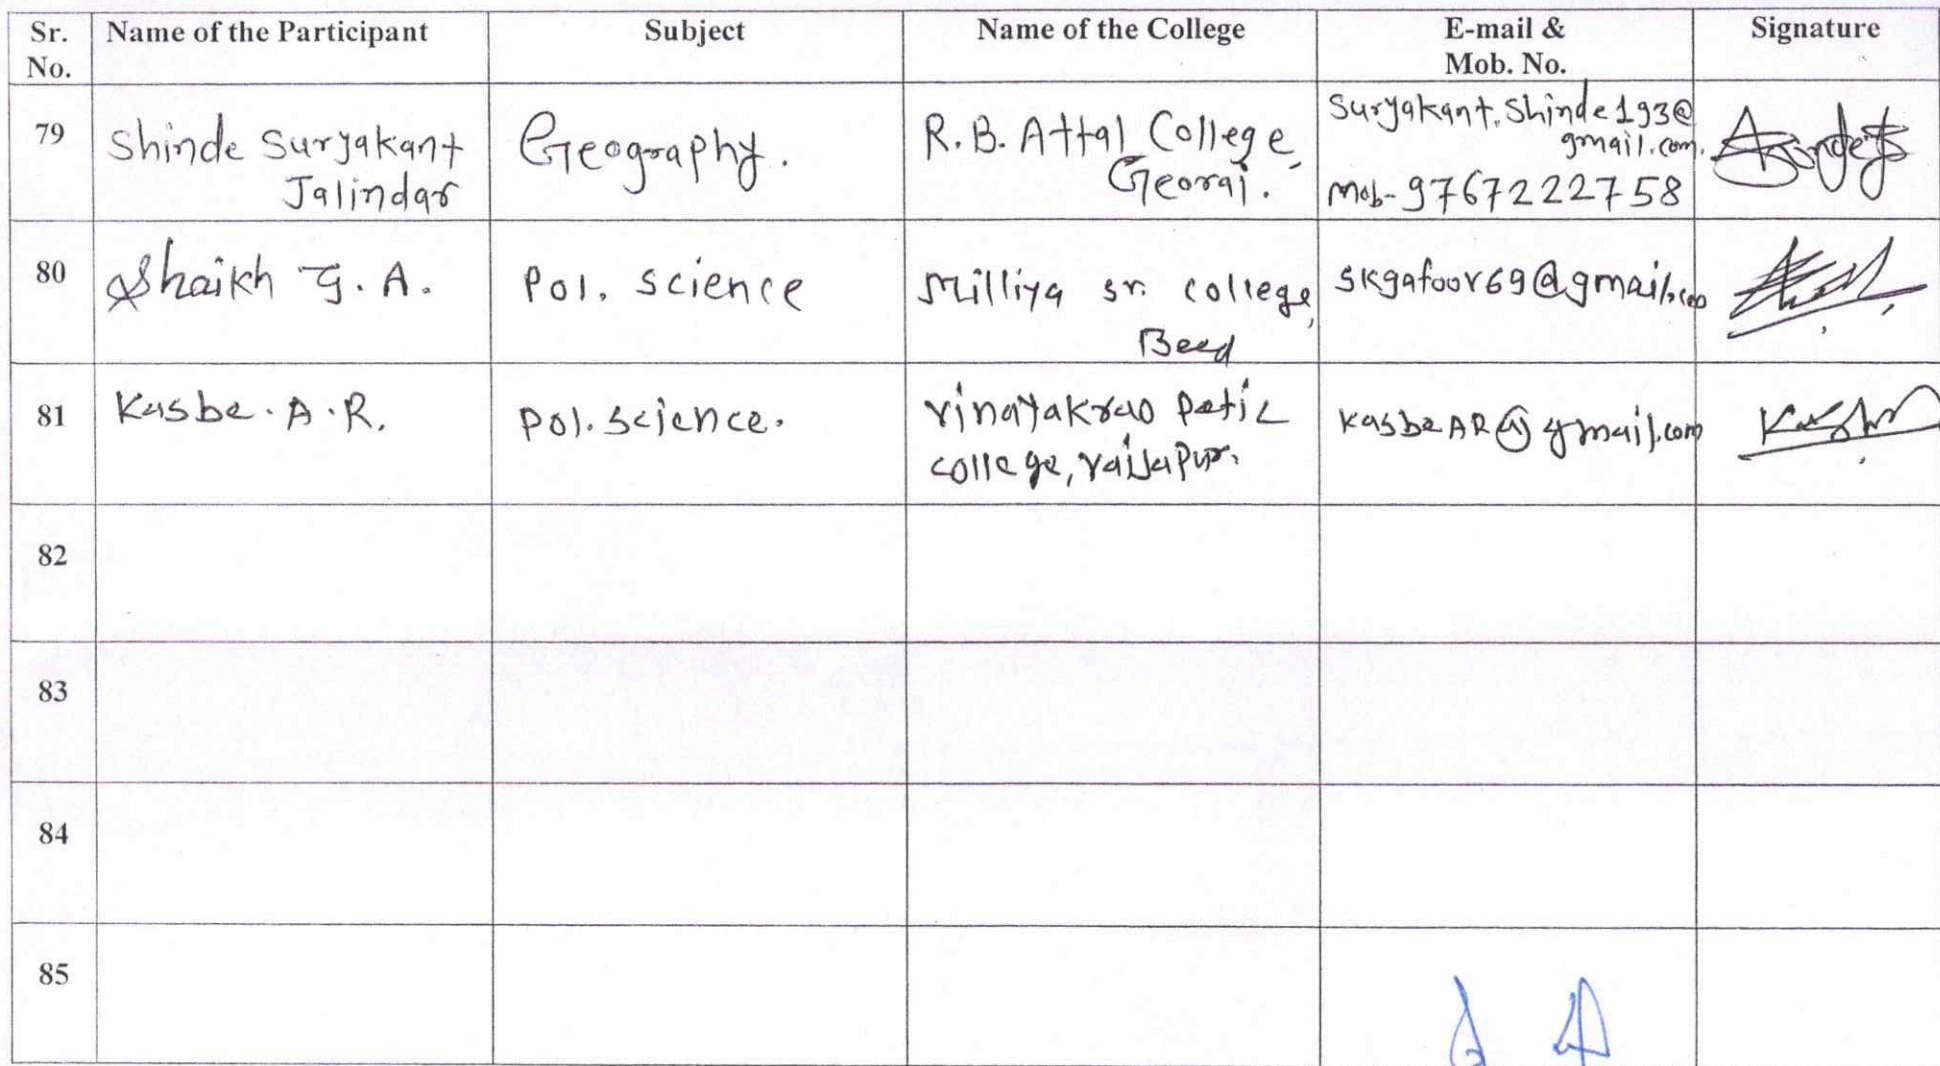 Sr. No. Name of the Participant Subject Name of the College E-mail & Mob. No. Signature
79 Shinde Suryakant Jalindar Geography. R.B. Attal College, Georai. Suryakant.Shinde193@gmail.com. Mob- 9767222758
80 Shaikh G. A. Pol. science Milliya sr. college, Beed skgafoor69@gmail.com
81 Kasbe. A. R. Pol. science. vinayakrao patil college, vaijapur. kasbeAR@gmail.com
82
83
84
85